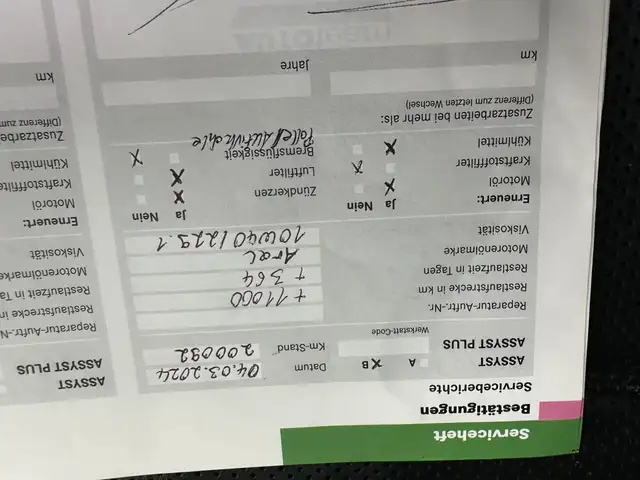 Serviceheft
Bestätigungen
Serviceberichte
ASSYST A B X Datum 04.03.2024
ASSYST PLUS Werkstatt-Code Km-Stand 200092
Reparatur-Auftr.-Nr.
Restlaufstrecke in km + 11000
Restlaufzeit in Tagen + 364
Motorenölmarke Aral
Viskosität 10W40/229.1
Erneuert: Ja Nein Ja Nein
Motoröl X Zündkerzen X
Kraftstofffilter X Luftfilter X
Kühlmittel X Bremsflüssigkeit X
Zusatzarbeiten bei mehr als:
(Differenz zum letzten Wechsel)
km Jahre
ASSYST
ASSYST PLUS
Reparatur-Auftr.-Nr.
Restlaufstrecke in
Restlaufzeit in Ta
Motorenölmarke
Viskosität
Erneuert:
Motoröl
Kraftstofffilte
Kühlmittel
Zusatzarbe
(Differenz zum
km